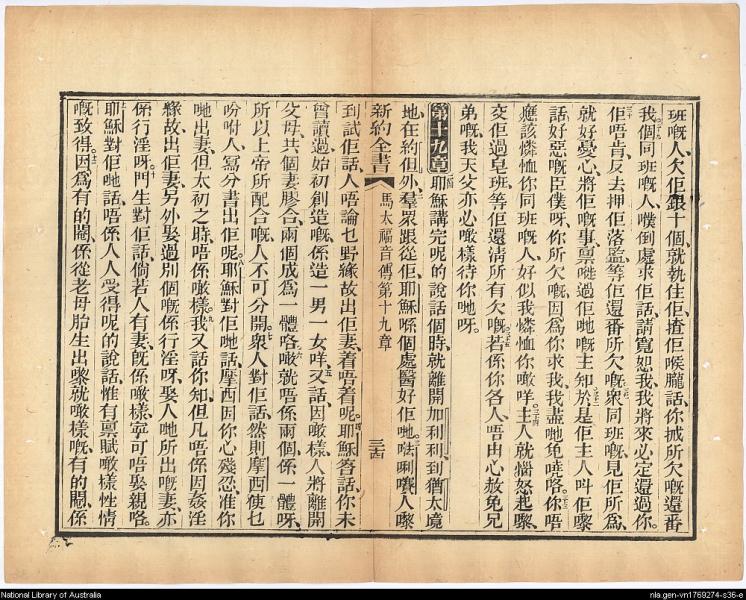 班嘅人、欠佢銀十個、就執住佢、揸佢喉嚨、話、你揻所欠嘅還番
我。個同班嘅人、噗倒處求佢話、請寬恕我、我將來必定還過你。
佢唔肯、反去押佢落監、等佢還番所欠嘅。衆同班嘅、見佢所爲、
就好憂心、將佢嘅事、禀嗮過佢哋嘅主知。於是佢主人呌佢嚟
話、好惡嘅臣僕呀、你所欠嘅、因爲你求我、我盡哋免哓咯。你唔
應該憐恤你同班嘅人、好似我憐恤你噉咩。主人就惱怒起嚟、
交佢過皂班、等佢還淸所有欠嘅。若係你各人、唔由心赦免兄
弟嘅、我天父亦必噉樣待你哋呀。
第十九章 耶穌講完呢的說話個時、就離開加利利、到猶太境
地、在約但外。羣衆跟從佢、耶穌喺個處醫好佢哋。唎人嚟
新約全書 馬太福音傳第十九章
到試佢話、人唔論乜野緣故出佢妻、着唔着呢。耶穌答話、你未
曾讀過、始初創造嘅、係造一男一女咩。又話、因噉樣、人將離開
父母、共個妻膠合、兩個成爲一體咯。噉就唔係兩個、係一體呀、
所以上帝所配合嘅、人不可分開。衆人對佢話、然則摩西使乜
吩咐人、寫分書出佢呢。耶穌對佢哋話、摩西因你心殘忍、准你
哋出妻、但太初之時、唔係噉樣。我又話你知、但凡唔係因姦淫
緣故出佢妻、另外娶過別個嘅、係行淫呀、娶人哋所出嘅妻、亦
係行淫呀。門生對佢話、倘若人有妻、旣係噉樣、寧可唔娶親咯。
耶穌對佢哋話、唔係人人受得呢的說話、惟有禀賦噉樣性情
嘅致得。因爲有的閹、係從老母胎生出嚟就噉樣嘅、有的閹、係
National Library of Australia
nla.gen-vn1769274-s36-e